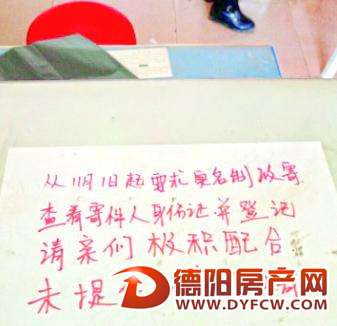 从11月1日起要求实名制收寄
查看寄件人身份证并登记
请亲们极积配合
未提
德阳房产网
WWW.DYFCW.COM